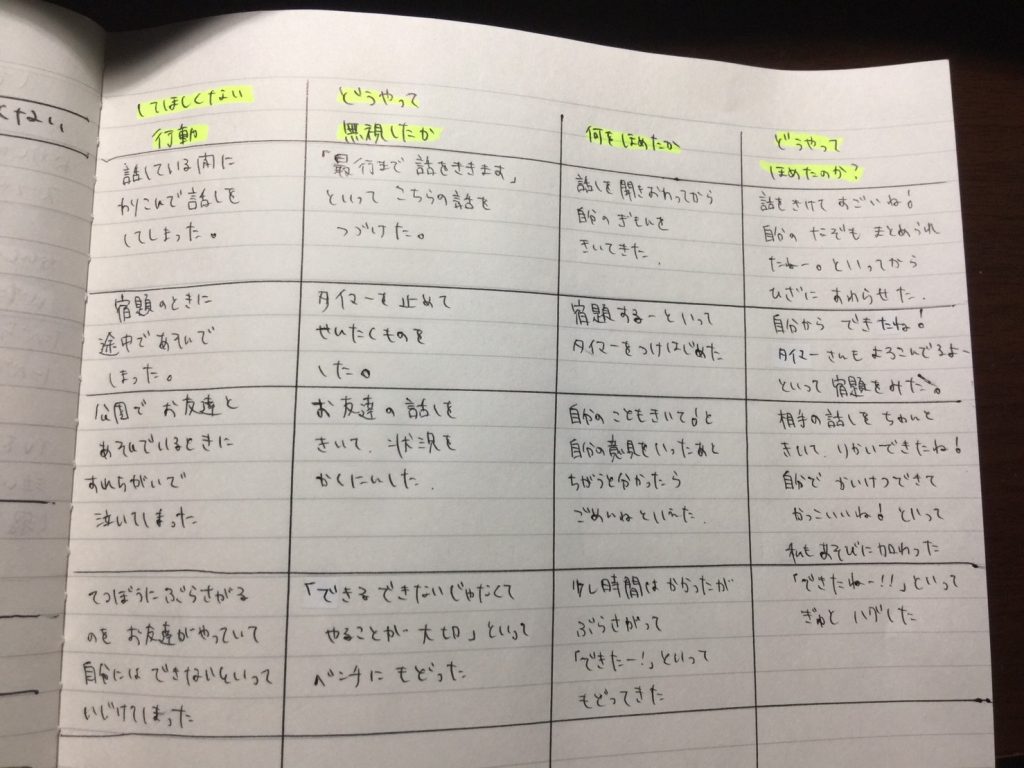 くない
してほしくない
行動
どうやって
無視したか
何をほめたか
どうやって
ほめたのか？
話している内に
わりこんで話しを
してしまった。
「最行まで話をききます」
といってこちらの話を
つづけた。
話しを聞きおわってから
自分のぎもんを
きいてきた.
話をきけてすごいね!
自分の だぞもまとめられ
たねー。といってから
ひざにすわらせた.
宿題のときに
途中であそんで
しまった。
タイマーを止めて
せいたくものを
した。
宿題するーといって
タイマーをつけはじめた
自分からできたね!
タイマーさんもよろこんでるよー
といって宿題をみた。
公園でお友達と
あそんでいるときに
すれちがいで
泣いてしまった
お友達の話しを
きいて、状況を
かくにんした.
自分のこともきいて!と
自分の意見をいったあと
ちがうと分かったら
ごめんねといえた.
相手の話しをちゃんと
きいて、りかいできたね!
自分でかいけつできて
かっこいいね!といって
私もあそびに加わった
てつぼうにぶらさがる
のをお友達がやっていて
自分にはできないといって
いじけてしまった
「できるできないじゃなくて
やることが大切」といって
ベンチにもどった
少し時間はかかったが
ぶらさがって
「できたー!」といって
もどってきた
「できたねー!!」といって
ぎゅとハグした